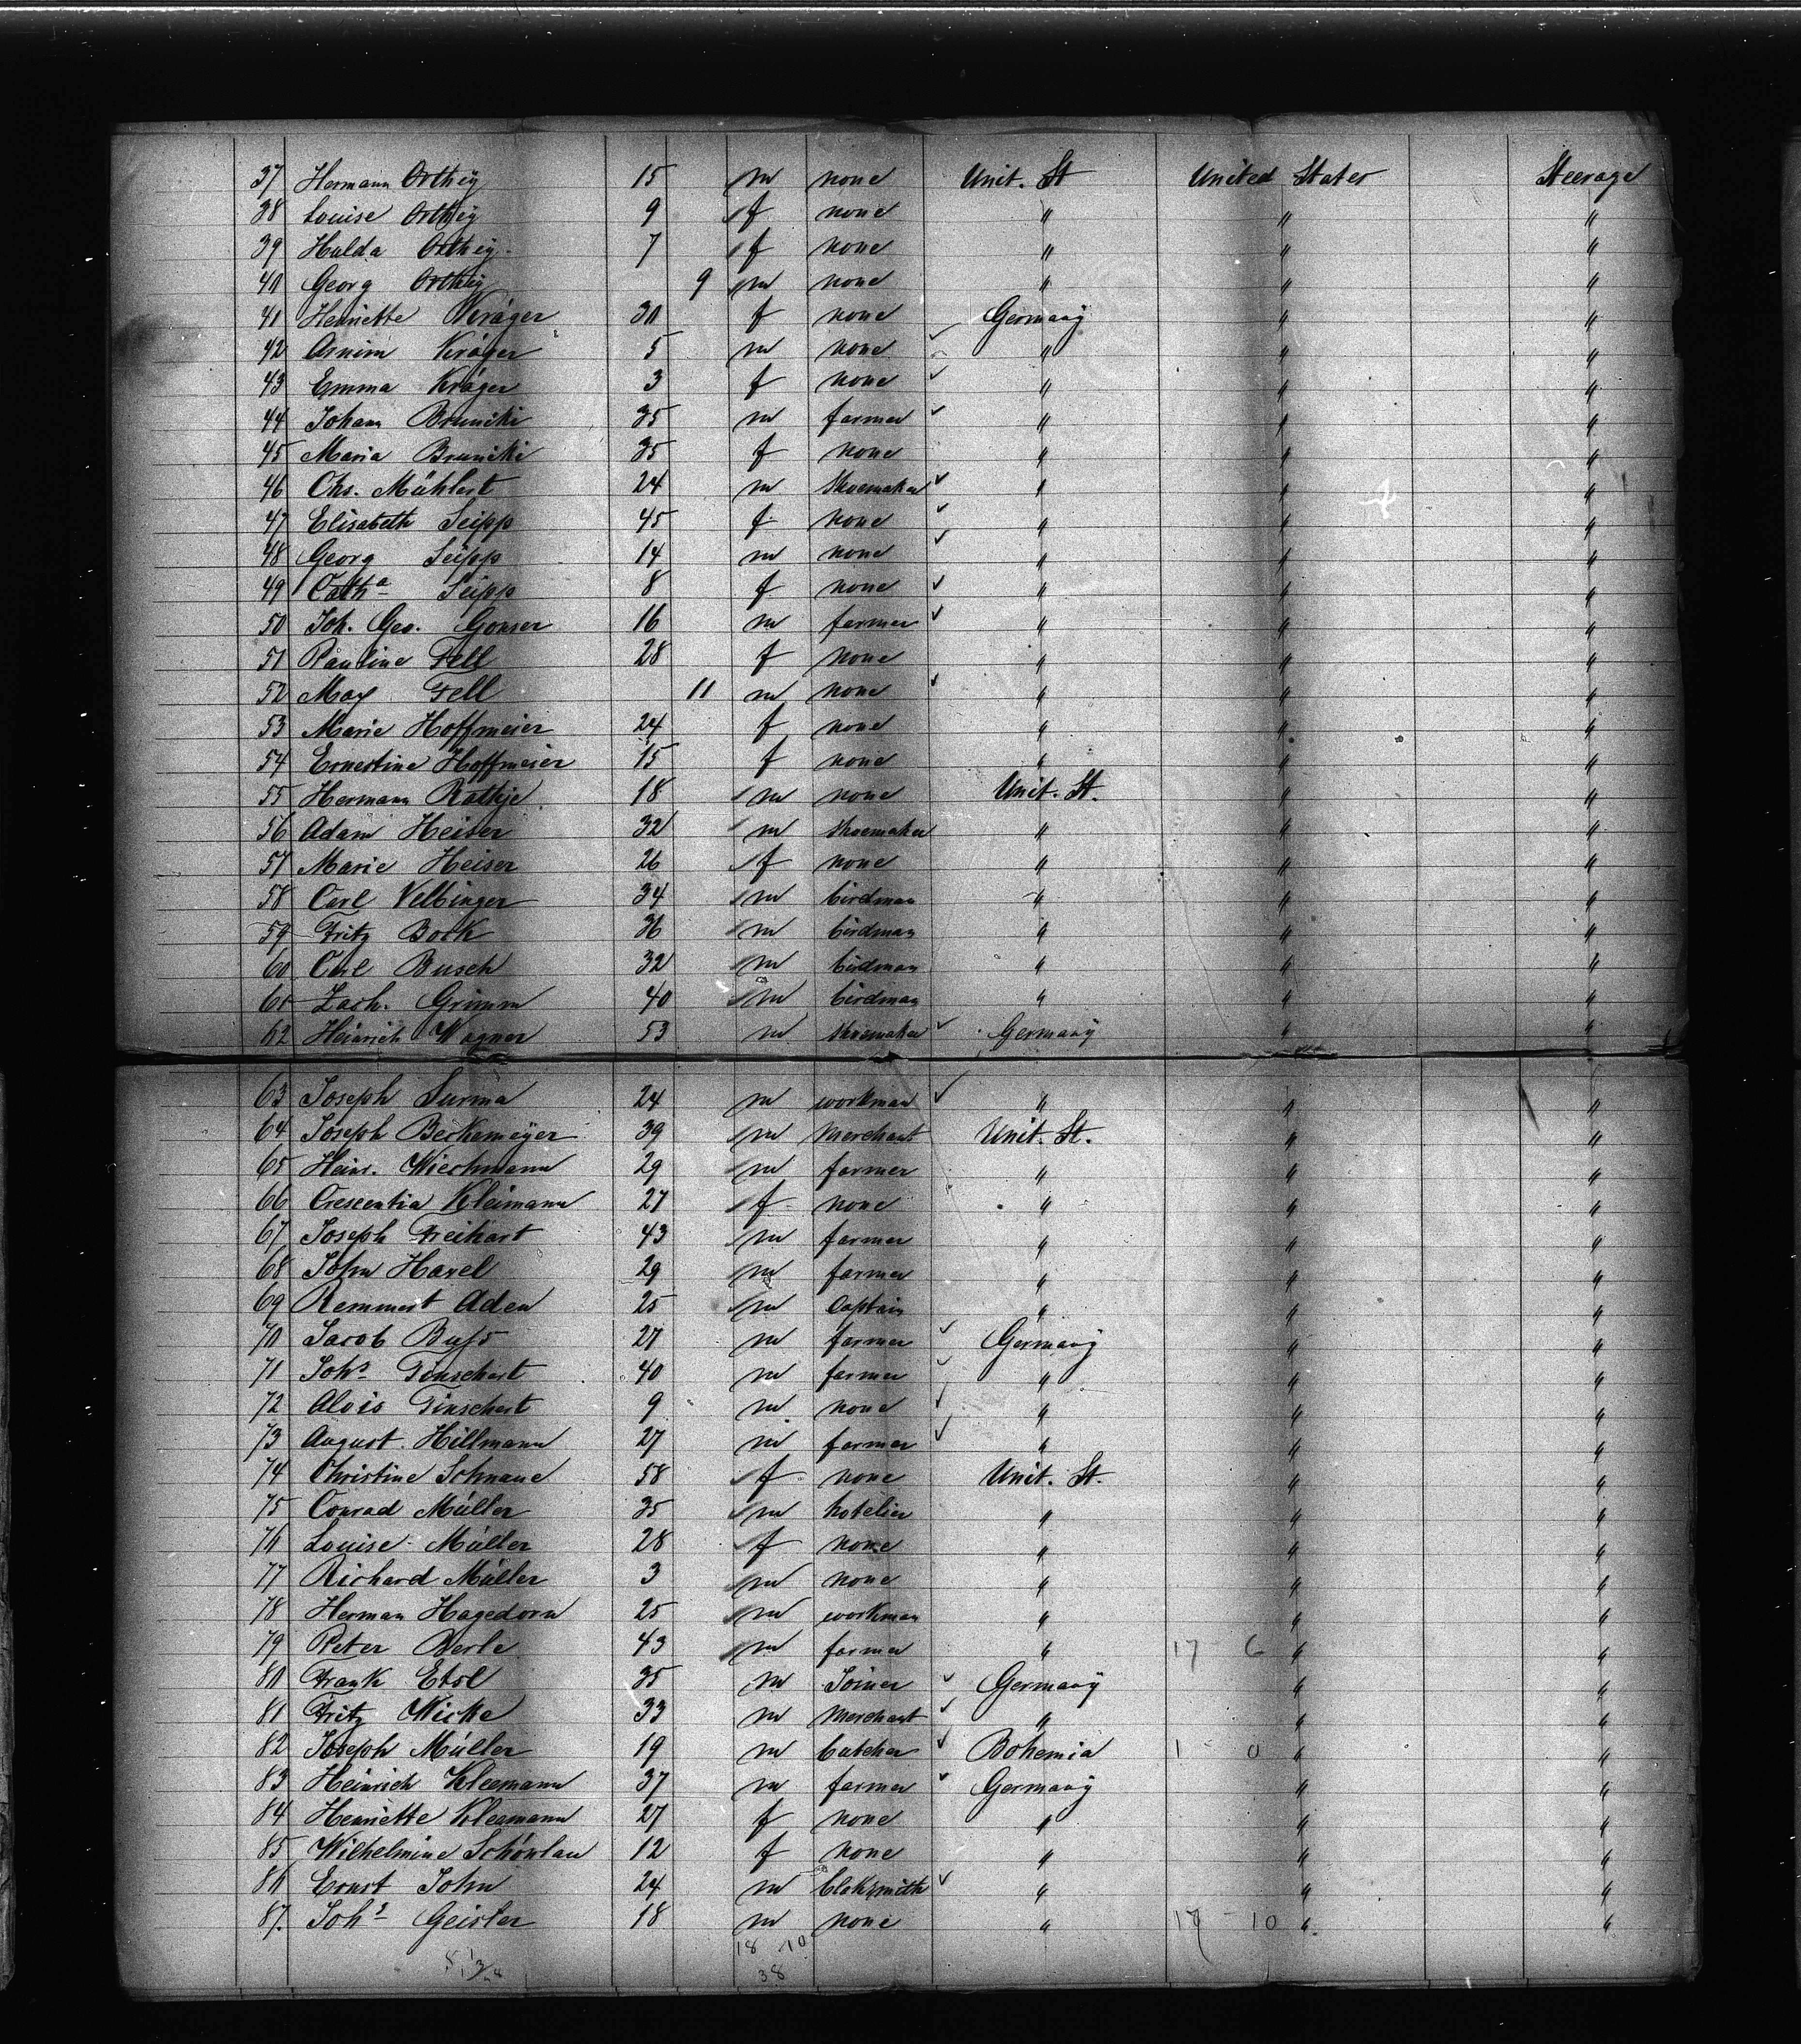 37 Hermann Orthey 15 m none Unit. St United States Steerage
38 Louise Orthey 9 f none " " "
39 Hulda Orthey 7 f none " " "
40 Georg Orthey 9 m none " " "
41 Henriette Kröger 30 f none Germany " "
42 Arnim Kröger 5 m none " " "
43 Emma Kröger 3 f none " " "
44 Johann 35 m farmer " " "
45 Maria 35 f none " " "
46 Chs. Mühlert 24 m Shoemaker " " "
47 Elisabeth Seipp 45 f none " " "
48 Georg Seipp 14 m none " " "
49 Catha Seipp 8 f none " " "
50 Joh. Geo. Gonser 16 m farmer " " "
51 Pauline Fell 28 f none " " "
52 Max Fell 11 m none " " "
53 Marie Hoffmeier 24 f none " " "
54 Ernestine Hoffmeier 15 f none " " "
55 Hermann Rathje 18 m none Unit. St. " "
56 Adam Heiser 32 m Shoemaker " " "
57 Marie Heiser 26 f none " " "
58 Carl Velbinger 34 m birdman " " "
59 Fritz Bock 36 m birdman " " "
60 Carl Busch 32 m birdman " " "
61 Zach. Grimm 40 m birdman " " "
62 Heinrich Wagner 53 m Shoemaker Germany " "
63 Joseph Surma 24 m workman " " "
64 Joseph Beckemeyer 39 m Merchant Unit. St. " "
65 Heinr. Wiechmann 29 m farmer " " "
66 Crescentia Kleimann 27 f none " " "
67 Joseph Freihart 43 m farmer " " "
68 John Havel 29 m farmer " " "
69 Remmert Aden 25 m Captain " " "
70 Jacob Buss 27 m farmer Germany " "
71 Johs 40 m farmer " " "
72 Alois Tinschert 9 m none " " "
73 August Hillmann 27 m farmer " " "
74 Christine Schnaue 58 f none Unit. St. " "
75 Conrad Müller 35 m hotelier " " "
76 Louise Müller 28 f none " " "
77 Richard Müller 3 m none " " "
78 Herman Hagedorn 25 m workman " " "
79 Peter Berle 43 m farmer " 17 6 " "
80 Frank Etsl 35 m Joiner Germany " "
81 Fritz Wicke 33 m Merchant " " "
82 Joseph Müller 19 m butcher Bohemia 1 - 0 " "
83 Heinrich Kleemann 37 m farmer Germany " "
84 Henriette Kleemann 27 f none " " "
85 Wilhelmine Schönlau 12 f none " " "
86 Ernst John 24 m blaksmith " " "
87. Johs Geisler 18 m none " 17 - 10 " "
18 10
38